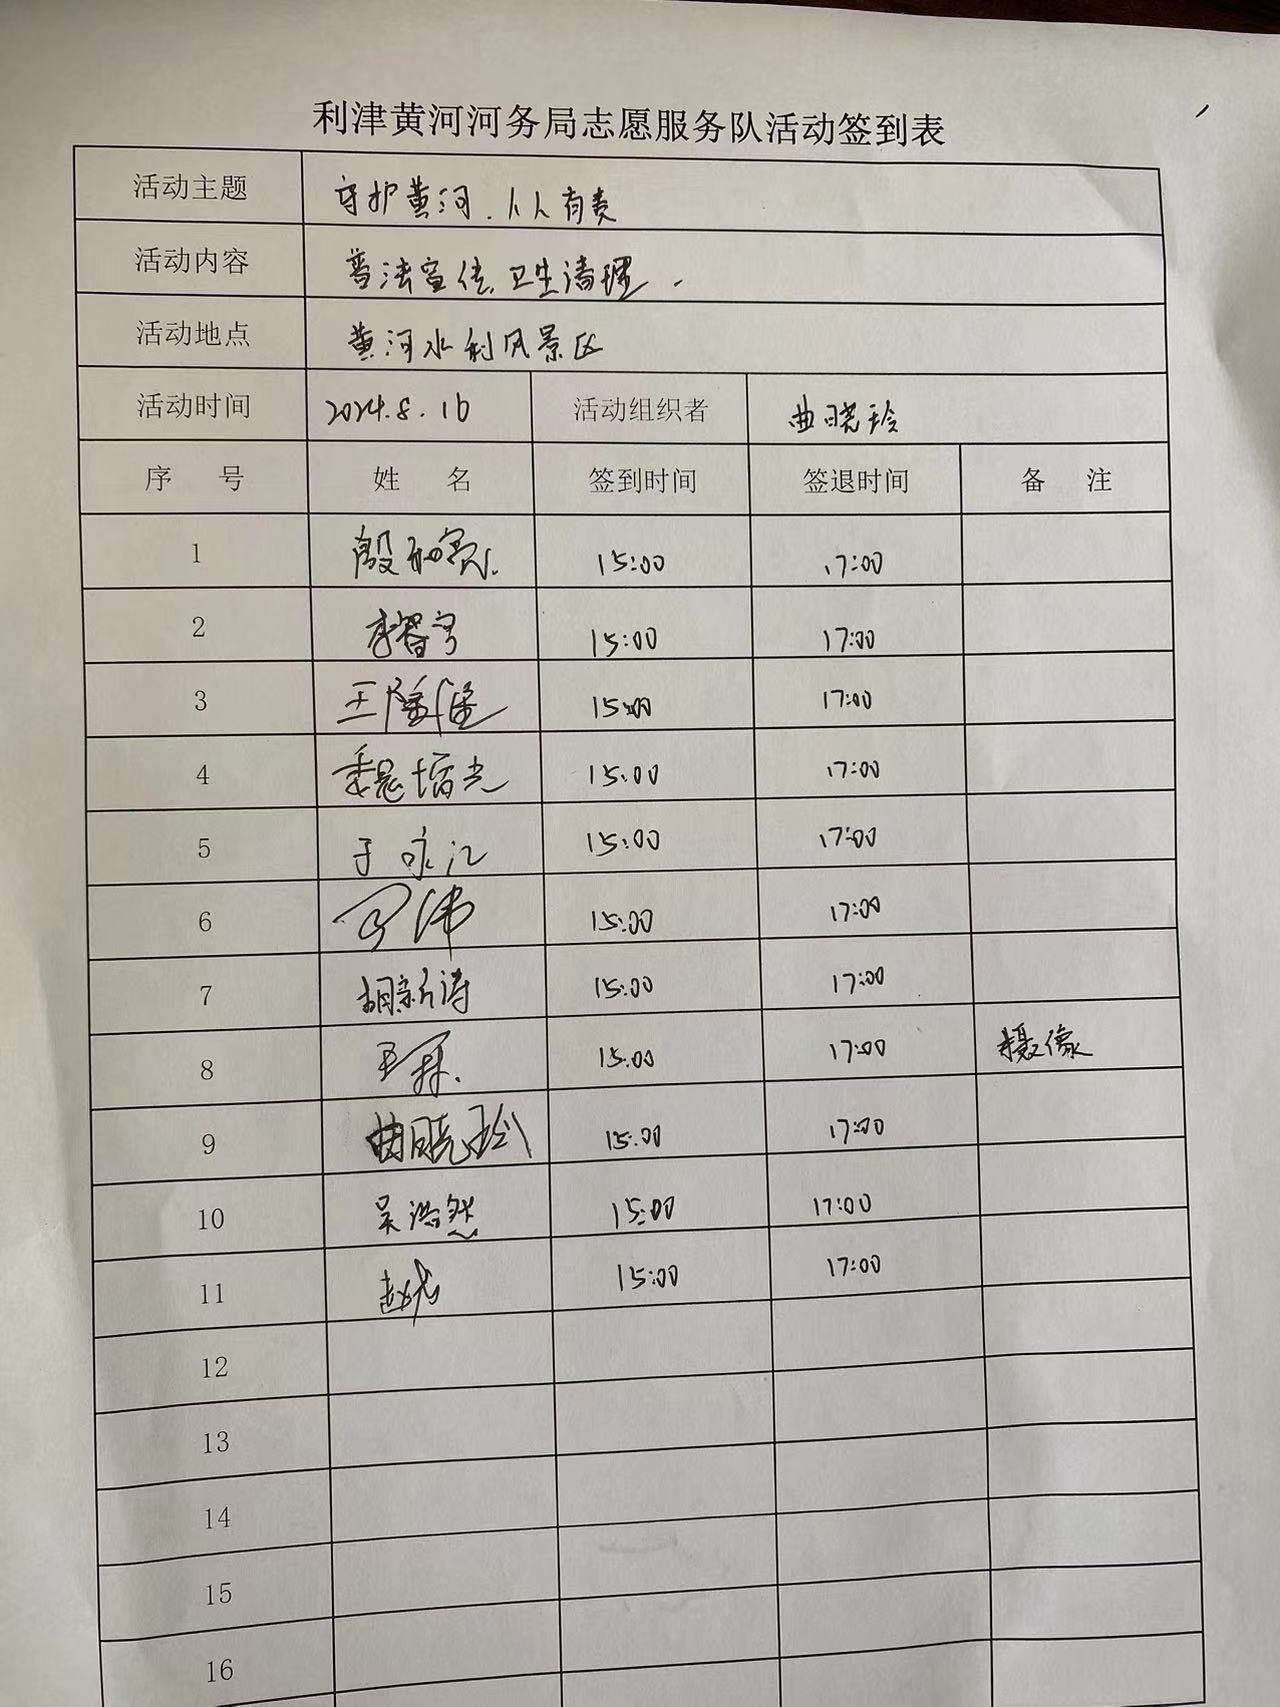 利津黄河河务局志愿服务队活动签到表
活动主题 守护黄河、人人有责
活动内容 普法宣传、卫生清理.
活动地点 黄河水利风景区
活动时间 2024.8.16 活动组织者 曲晓玲
序 号 姓 名 签到时间 签退时间 备 注
1 殷和 15:00 17:00
2 李智宇 15:00 17:00
3 王隆 15:00 17:00
4 魏增光 15:00 17:00
5 于咏江 15:00 17:00
6 伟 15:00 17:00
7 胡新涛 15:00 17:00
8 王 15:00 17:00 摄像
9 曲晓玲 15:00 17:00
10 吴浩然 15:00 17:00
11 赵龙 15:00 17:00
12
13
14
15
16